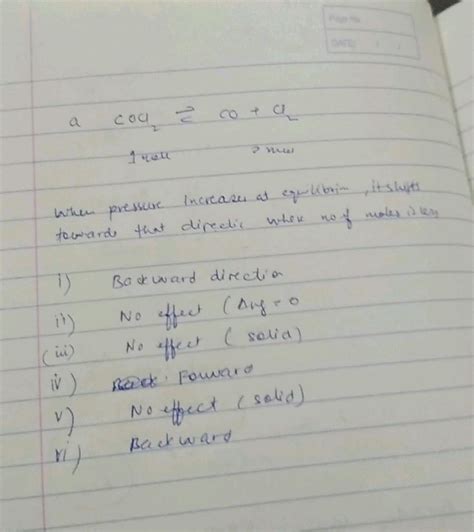 Page No.
DATE: / /
a COCl₂ ⇌ CO + Cl₂
1 mole 2 moles
When pressure increases at equilibrim, it shifts
towards that directic where no of moles is less
i) Backward direction
ii) No effect (Δng = 0
(iii) No effect (solid)
iv) Forward
v) No effect (solid)
vi) Backward